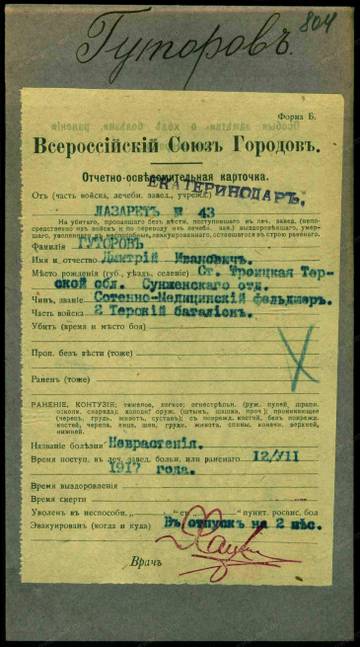 Гуторовъ.
804
Форма Б.
Всероссійскій Союзъ Городовъ.
Отчетно-освѣдомительная карточка.
ЕКАТЕРИНОДАРЪ,
Отъ (часть войска, лечебн. завед., учрежд.)
ЛАЗАРЕТЪ № 43
На убитаго, пропавшаго безъ вѣсти, поступившаго въ леч. завед. (непо-
средственно изъ войскъ и по переводу изъ лечебн. зав.) выздоровѣвшаго, умер-
шаго, уволеннаго въ неспособные, эвакуированнаго, оставшагося въ строю раненаго.
Фамилія ГУТОРОВЪ
Имя и отчество Дмитрій Ивановичъ.
Мѣсто рожденія (губ., уѣздъ, селеніе) Ст. Троицкая Тер-
ской обл. Сунженскаго отд.
Чинъ, званіе Сотенно-Медицинскій фельдшеръ.
Часть войска 2 Терскій баталіонъ.
Убитъ (время и мѣсто боя)
Проп. безъ вѣсти (тоже)
Раненъ (тоже)
РАНЕНІЕ, КОНТУЗІЯ: тяжелое, легкое; огнестрѣльн. (руж. пулей, шрапн.
осколк. снаряда); холодн. оруж. (штыкъ, шашка, проч.); проникающее
(черепъ, грудь, животъ, суставъ); съ поврежд. костей, безъ поврежд.
костей, черепа, лица, шеи, груди, живота, спины, конечн. верхней,
нижней.
Названіе болѣзни Неврастенія.
Время поступ. въ леч. завед. больн. или раненаго 12/VII
1917 года.
Время выздоровленія
Время смерти
Уволенъ въ неспособн. „ “ ст. пункт. роспис. бол
Эвакуированъ (когда и куда) Въ отпускъ на 2 мѣс.
Врачъ